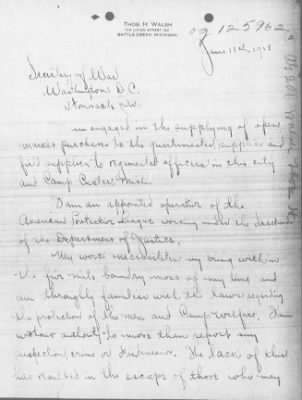 THOS. H. WALSH
BATTLE CREEK, MICHIGAN
og 125962
June 11th 1918
Secretary of War
Washington D.C.
Honorable Sir
am engaged in the supplying of open
purchases to the quartermaster supplies and
field supplies to regimental officers in this city
and Camp Custer Mich.
I am an appointed operator of the
American Protective League working under the direction
of the Department of Justice.
My work necessitates my being within
the five mile boundry most of my time and
am throughly familiar with the laws
the protection of the men and Camp welfare. I am
without authority to more than report any
crime or The lack of this
has resulted in the escape of those who may